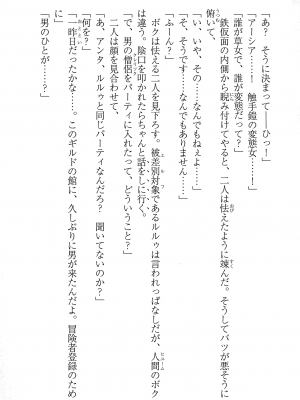 「あ？　そうに決まって――ひっ！」
「誰が草女で、誰が変態だって？」
「アーシア……！　触手鎧の変態女……！」
鉄仮面の内側から睨み付けてやると、二人は怯えたように竦んだ。そうしてバツが悪そうに
俯いて、
「い、いや、その……なんでもねぇよ……」
「そ、そうです……なんでもありません……」
「ふーん？」
ボクは怯える二人を見下ろす。被差別対象であるルルゥは言われっぱなしだが、人間のボク
は違う。陰口を叩かれたらちゃんと話をしに行く。
「で、男の僧侶をパーティに入れたって、どういうこと？」
二人は顔を見合わせて、
「あ、アンタ、ルルゥと同じパーティなんだろ？　聞いてないのか？」
「何を？」
「一昨日だったかな……。このギルドの館に、久しぶりに男が来たんだよ。冒険者登録のため
に」
「男のひとが……？」